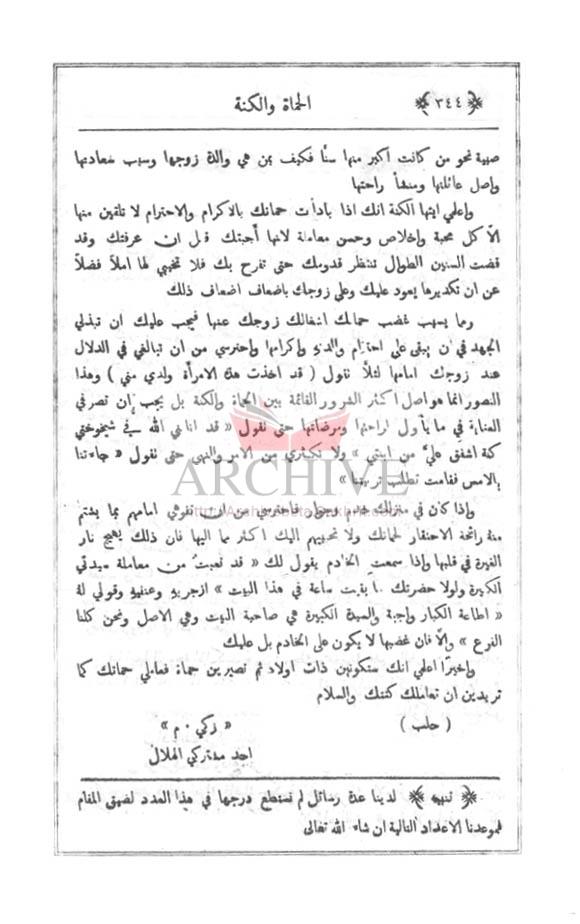 ﴿ ٣٤٤ ﴾ الحماة والكنة
صبية نحو من كانت اكبر منها سنًّا فكيف بمن هي والدة زوجها وسبب سعادتها
واصل عائلتها ومنشأ راحتها
واعلمي ايتها الكنة انك اذا بادأت حماتك بالاكرام والاحترام لا تلقين منها
الَّا كل محبة واخلاص وحسن معاملة لانها أحبتك قبل ان عرفتك وقد
قضت السنين الطوال تنتظر قدومك حتى تفرح بك فلا تخيبي لها املًا فضلًا
عن ان تكديرها يعود عليك وعلى زوجك باضعاف اضعاف ذلك
ومما يسبب غضب حماتك اشغالك زوجك عنها فيجب عليك ان تبذلي
الجهد في ان يبقى على احترام والدتهِ واكرامها واحترسي من ان تبالغي في الدلال
عند زوجك امامها لئلَّا نقول ( قد اخذت هذه الامرأة ولدي مني ) وهذا
التصور انما هو اصل اكثر الشرور القائمة بين الحماة والكنة بل يجب ان تصرفي
العناية في ما يأول لراحتها ومرضاتها حتى نقول « قد اتاني الله في شيخوختي
كنة اشفق عليَّ من ابنتي » ولا تكثري من الامر والنهي حتى نقول « جاءتنا
بالامس فقامت تطلب تربيتنا »
ARCHIVE
واذا كان في منزلك خدم وحول فاحترسي من ان تفوهي امامهم بما يشتم
منهُ رائحة الاحتقار لحماتك ولا تحببيهم اليك اكثر مما اليها فان ذلك يهيج نار
الغيرة في قلبها واذا سمعتِ الخادم يقول لك « قد تعبت من معاملة سيدتي
الكبيرة ولولا حضرتك ما بقيت ساعة في هذا البيت » ازجريهِ وعنفيهِ وقولي لهُ
« اطاعة الكبار واجبة والسيدة الكبيرة هي صاحبة البيت وهي الاصل ونحن كلنا
الفرع » والَّا فان غضبها لا يكون على الخادم بل عليك
واخيرًا اعلمي انك ستكونين ذات اولاد ثم تصيرين حماة فعاملي حماتك كما
تريدين ان تعاملك كنتك والسلام
( حلب ) « زكي . م »
احد مشتركي الهلال
﴿ تنبيه ﴾ لدينا عدة رسائل لم نستطع درجها في هذا العدد لضيق المقام
فموعدنا الاعداد التالية ان شاء الله تعالى